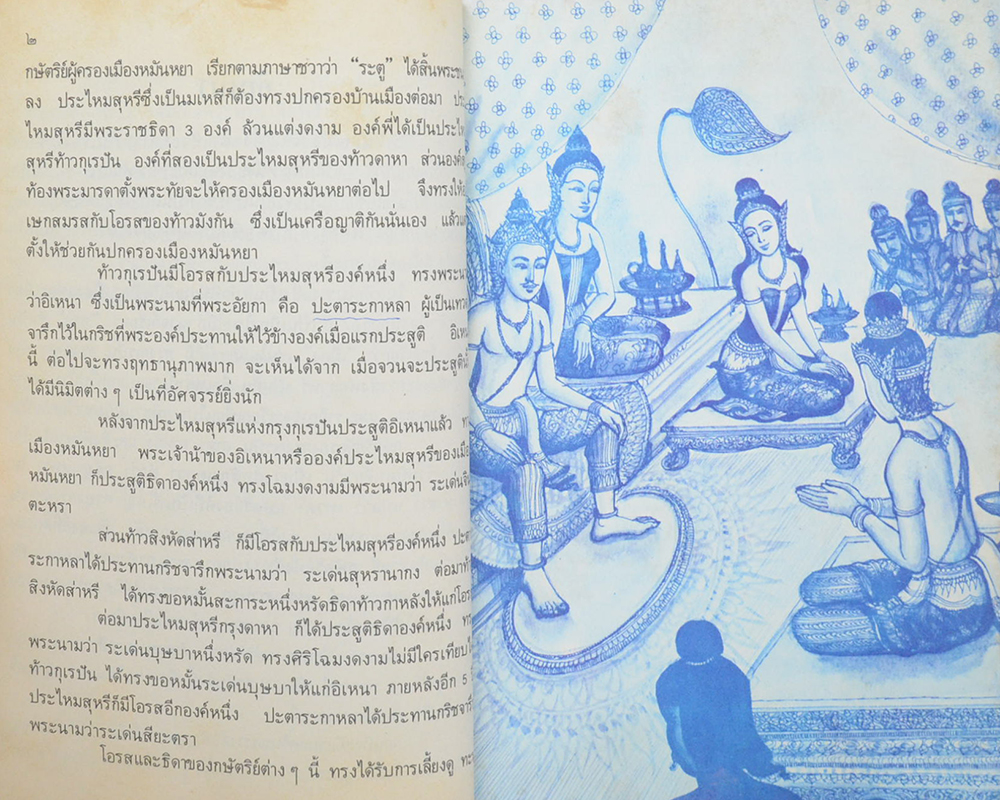 ๒
กษัตริย์ผู้ครองเมืองหมันหยา เรียกตามภาษาชวาว่า “ระตู” ได้สิ้นพระชน
ลง ประไหมสุหรีซึ่งเป็นมเหสีก็ต้องทรงปกครองบ้านเมืองต่อมา
ไหมสุหรีมีพระราชธิดา 3 องค์ ล้วนแต่งดงาม องค์พี่ได้เป็นประไห
สุหรีท้าวกุเรปัน องค์ที่สองเป็นประไหมสุหรีของท้าวดาหา ส่วนองค์
ท้องพระมารดาตั้งพระทัยจะให้ครองเมืองหมันหยาต่อไป จึงทรงให้
เษกสมรสกับโอรสของท้าวมังกัน ซึ่งเป็นเครือญาติกันนั่นเอง แล้ว
ตั้งให้ช่วยกันปกครองเมืองหมันหยา
ท้าวกุเรปันมีโอรสกับประไหมสุหรีองค์หนึ่ง ทรงพระนา
ว่าอิเหนา ซึ่งเป็นพระนามที่พระอัยกา คือ ปะตาระกาหลา ผู้เป็นเทว
จารึกไว้ในกริชที่พระองค์ประทานให้ไว้ข้างองค์เมื่อแรกประสูติ อิเห
นี้ ต่อไปจะทรงฤทธานุภาพมาก จะเห็นได้จาก เมื่อจวนจะประสูติ
ได้มีนิมิตต่าง ๆ เป็นที่อัศจรรย์ยิ่งนัก
หลังจากประไหมสุหรีแห่งกรุงกุเรปันประสูติอิเหนาแล้ว
เมืองหมันหยา พระเจ้าน้าของอิเหนาหรือองค์ประไหมสุหรีของเมือ
หมันหยา ก็ประสูติธิดาองค์หนึ่ง ทรงโฉมงดงามมีพระนามว่า ระเด่น
ตะหรา
ส่วนท้าวสิงหัดส่าหรี ก็มีโอรสกับประไหมสุหรีองค์หนึ่ง ปะต
ระกาหลาได้ประทานกริชจารึกพระนามว่า ระเด่นสุหรานากง ต่อมาท้า
สิงหัดส่าหรี ได้ทรงขอหมั้นสะการะหนึ่งหรัดธิดาท้าวกาหลังให้แก่โอร
ต่อมาประไหมสุหรีกรุงดาหา ก็ได้ประสูติธิดาองค์หนึ่ง
พระนามว่า ระเด่นบุษบาหนึ่งหรัด ทรงศิริโฉมงดงามไม่มีใครเทียบ
ท้าวกุเรปัน ได้ทรงขอหมั้นระเด่นบุษบาให้แก่อิเหนา ภายหลังอีก 5
ประไหมสุหรีก็มีโอรสอีกองค์หนึ่ง ปะตาระกาหลาได้ประทานกริชจารึ
พระนามว่าระเด่นสียะตรา
โอรสและธิดาของกษัตริย์ต่าง ๆ นี้ ทรงได้รับการเลี้ยงดู